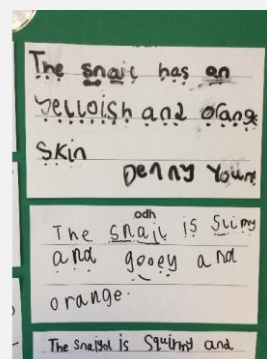 The snail has an
yelloish and orange
skin
Denny Young
odh
The snail is slimy
and gooey and
orange.
The snaiyol is squirmy and